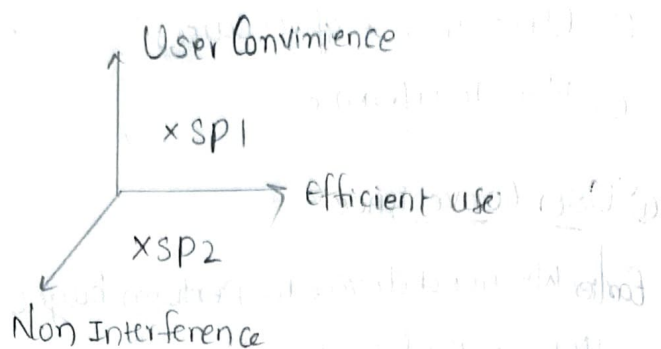 User Convinience
× SP1
Efficient use
×SP2
Non Interference